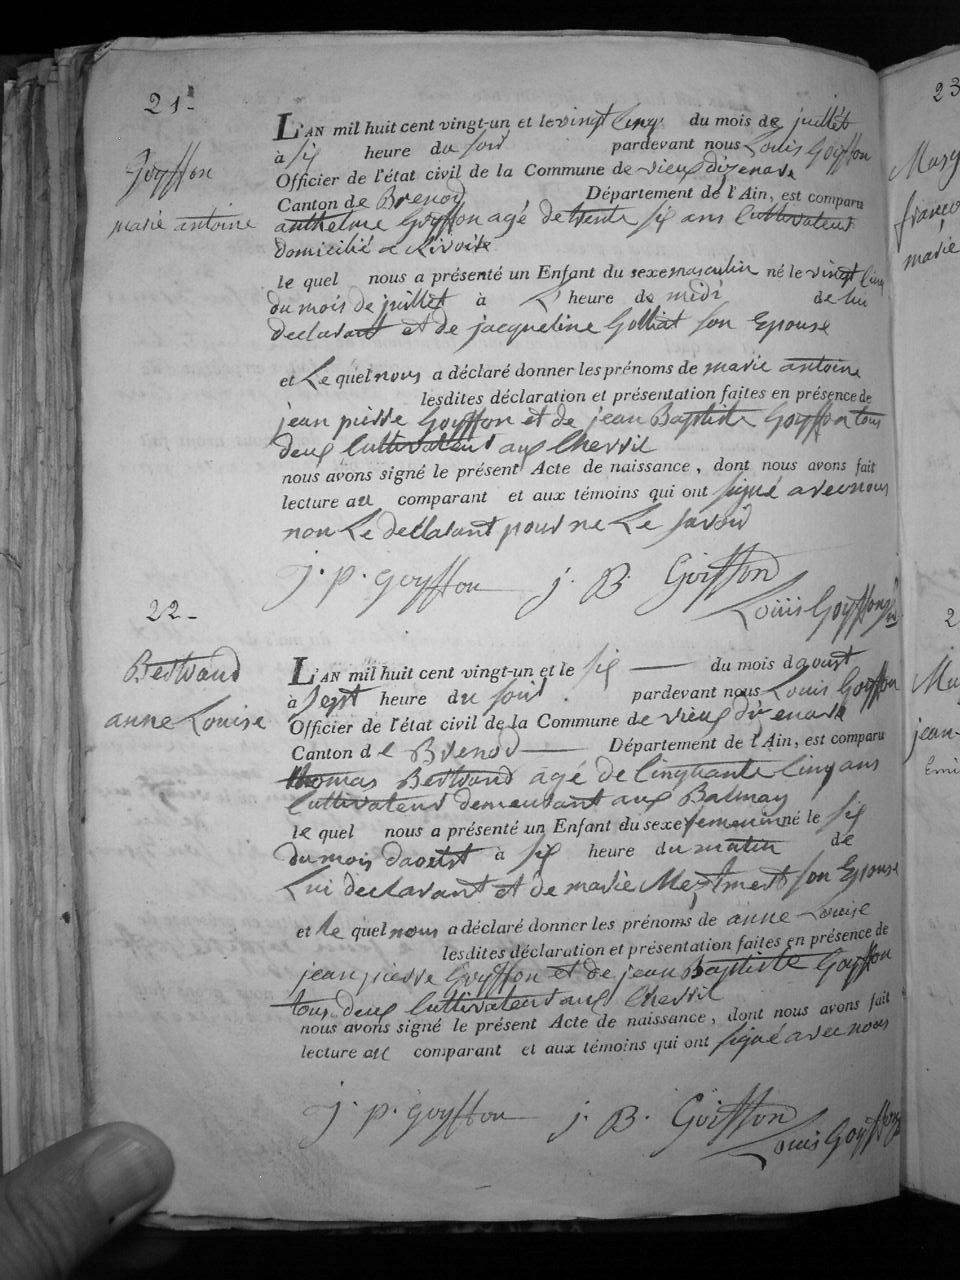 21-
Goyffon
marie antoine
L'AN mil huit cent vingt-un et le vingt cinq du mois de juillet
à six heure du soir pardevant nous Louis Goyffon
Officier de l'état civil de la Commune de vieux dizenave
Canton de Brenod Département de l'Ain, est comparu
anthelme Goyffon agé de trente six ans Cultivateur
domicilié a
le quel nous a présenté un Enfant du sexe masculin né le vingt cinq
du mois de juillet à L' heure de midi de lui
declarant et de jacqueline Golliat son Epouse
et Le quel nous a déclaré donner les prénoms de marie antoine
lesdites déclaration et présentation faites en présence de
jean pierre Goyffon et de jean Baptiste Goyffon tous
deux Cultivateur aux Chevril
nous avons signé le présent Acte de naissance, dont nous avons fait
lecture au comparant et aux témoins qui ont signé avec nous
non Le declarant pour ne Le savoir
j. p. goyffon j. B. Goiffon
Louis Goyffon
22-
Bertrand
anne Louise
L'AN mil huit cent vingt-un et le six du mois daoust
à sept heure du soir pardevant nous Louis Goyffon
Officier de l'état civil de la Commune de vieux dizenave
Canton de Brenod Département de l'Ain, est comparu
thomas Bertrand agé de Cinquante Cinq ans
Cultivateur demeurant aux Balmay
le quel nous a présenté un Enfant du sexe femeninn né le six
du mois daoust à six heure du matin de
Lui declarant et de marie son Epouse
et le quel nous a déclaré donner les prénoms de anne Louise
lesdites déclaration et présentation faites en présence de
jean pierre Goyffon et de jean baptiste Goyffon
tous deux Cultivateur aux Chevril
nous avons signé le présent Acte de naissance, dont nous avons fait
lecture au comparant et aux témoins qui ont signé avec nous
j. p. goyffon j. B. Goiffon
Louis Goyffon
23
marie
jean-